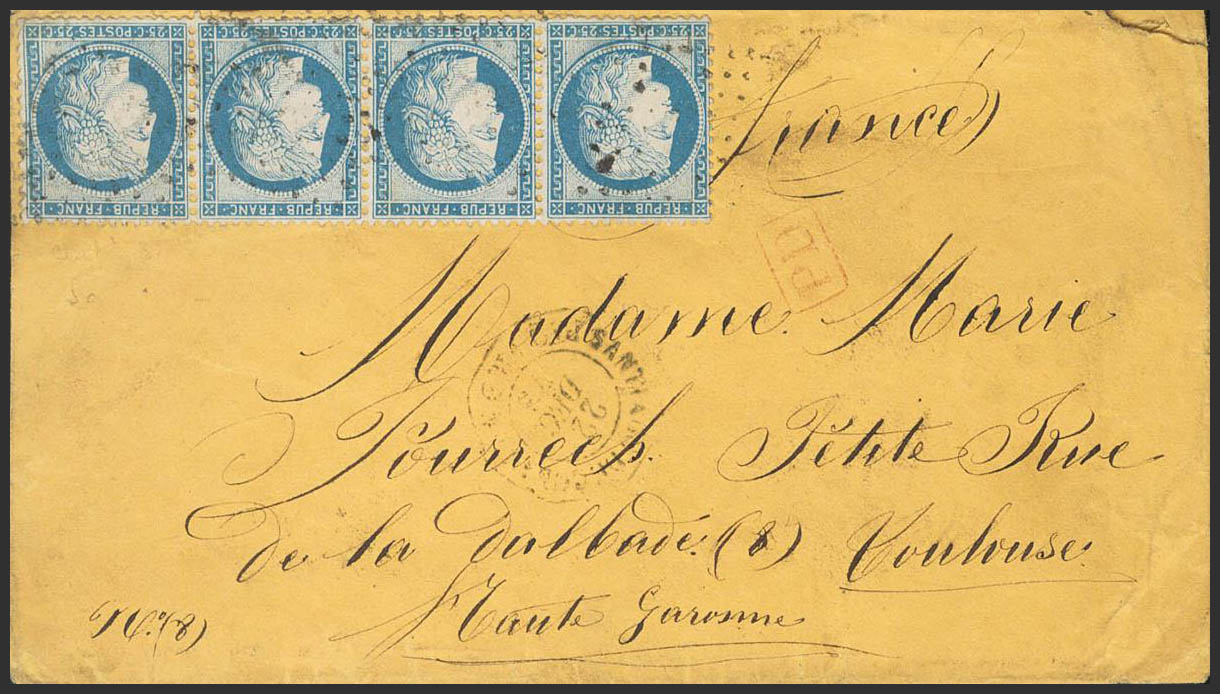 25 C. POSTES. 25 C. 25 C. POSTES. 25 C. 25 C. POSTES. 25 C. 25 C. POSTES. 25 C.
REPUB · FRANC · REPUB · FRANC · REPUB · FRANC · REPUB · FRANC ·
France)
PD
Madame Marie
22 DEC
Petite Rue
De la Dalbade. (8) Toulouse
Haute Garonne
No. (8)